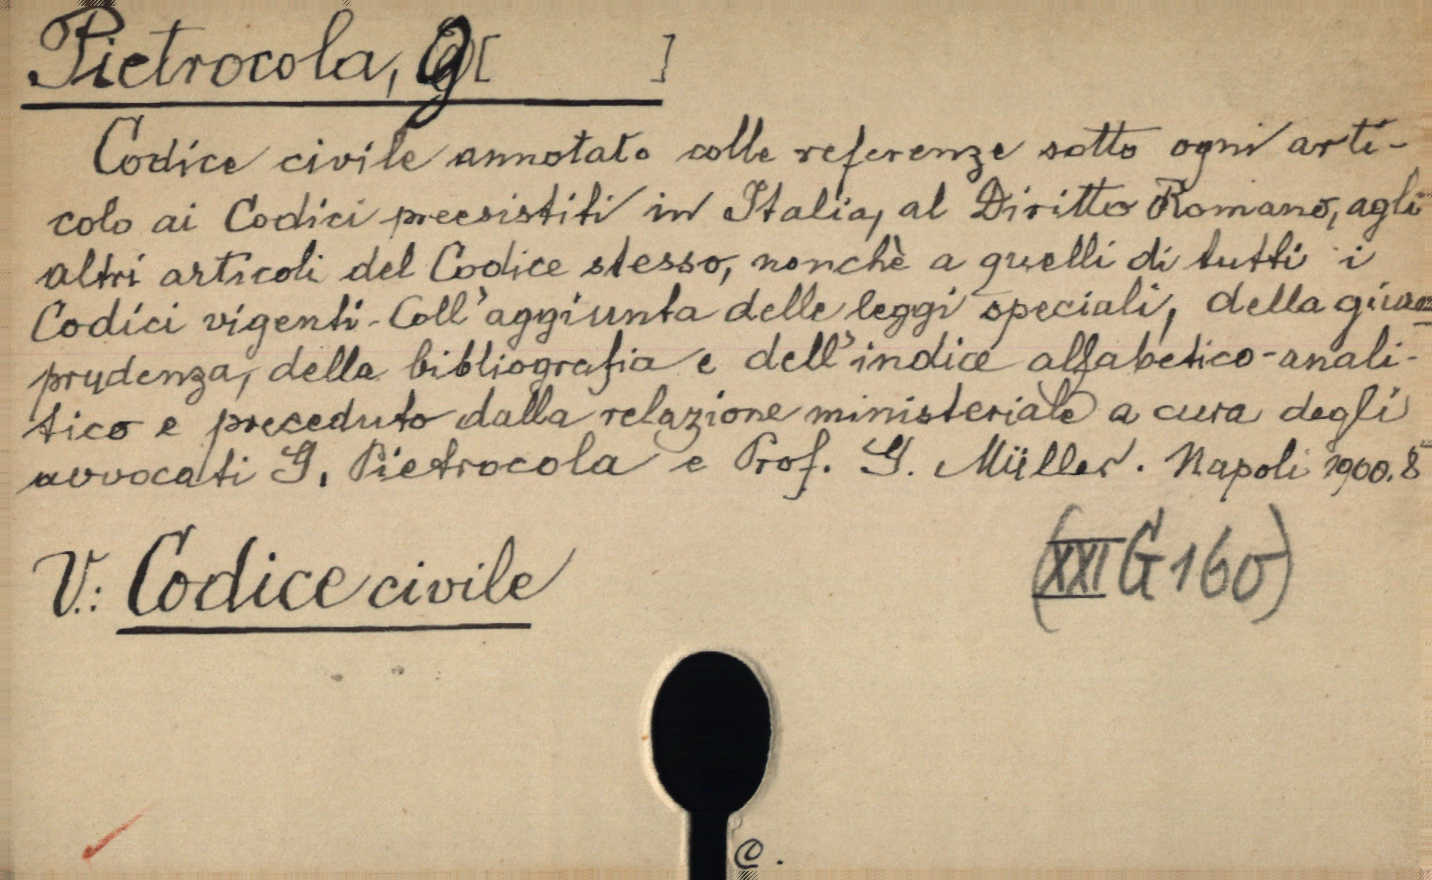 Pietrocola, G[ ]
Codice civile annotato colle referenze sotto ogni arti-
colo ai Codici preesistiti in Italia, al Diritto Romano, agli
altri articoli del Codice stesso, nonchè a quelli di tutti i
Codici vigenti. Coll'aggiunta delle leggi speciali, della giuris-
prudenza, della bibliografia e dell'indice alfabetico-anali-
tico e preceduto dalla relazione ministeriale a cura degli
avvocati G. Pietrocola e Prof. G. Müller. Napoli 1900. 8
V.: Codice civile
(XXI G 160)
C.